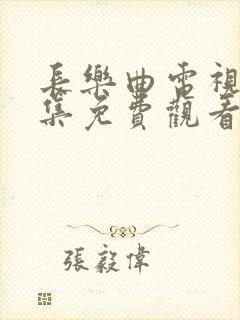 長樂曲電視
集免費觀看
張毅偉